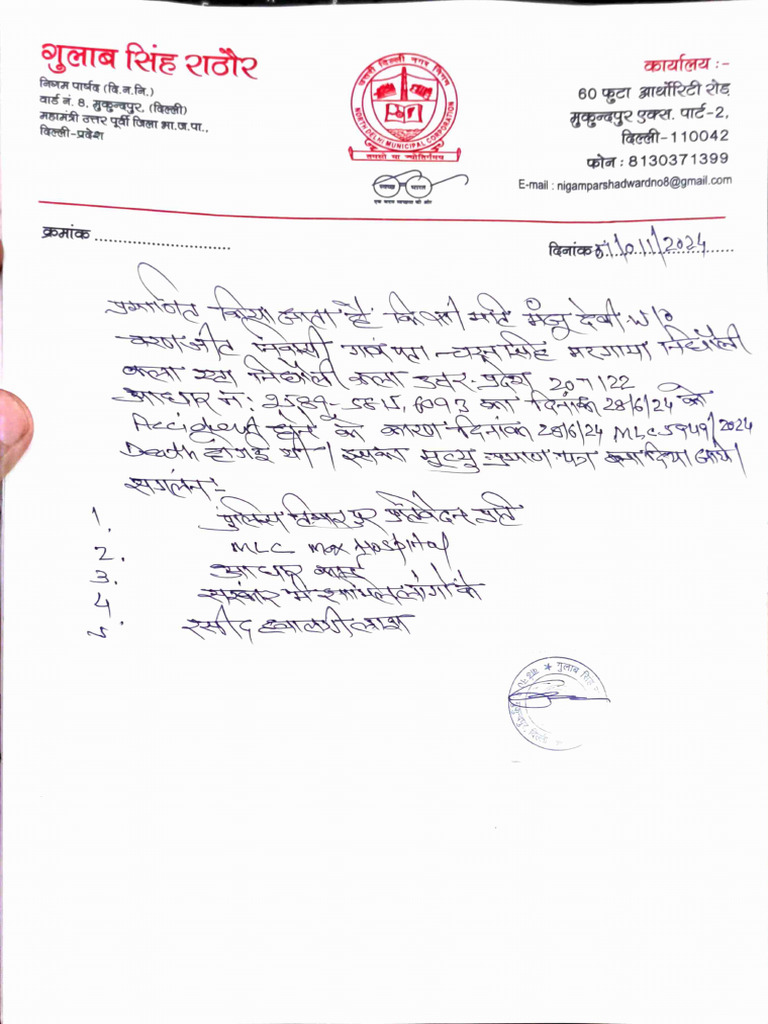 गुलाब सिंह राठौर
निगम पार्षद (दि.न.नि.)
वार्ड नं. 8, मुकुन्दपुर, (दिल्ली)
महामंत्री उत्तर पूर्वी जिला भा.ज.पा.,
दिल्ली-प्रदेश
उत्तरी दिल्ली नगर निगम
NORTH DELHI MUNICIPAL CORPORATION
तमसो मा ज्योतिर्गमय
स्वच्छ भारत
एक कदम स्वच्छता की ओर
कार्यालय :-
60 फुटा आर्थोरिटी रोड़
मुकुन्दपुर एक्स. पार्ट-2,
दिल्ली-110042
फोन : 8130371399
E-mail : nigamparshadwardno8@gmail.com
क्रमांक
दिनांक 2024
प्रमाणित किया जाता है कि मंजू देवी W/o
चरणजीत निधौली
कला निधौली कला उत्तर-प्रदेश 207122
आधार नं: का दिनांक 28/6/24 को
Accident होने के कारण दिनांक 28/6/24 MLC 2024
Death होगई थी। इसका मृत्यु प्रमाण पत्र बना दिया जाये।
सगलंन:-
1. पुलिस
2. MLC Max Hospital
3. आधार कार्ड
4. संस्कार में शामिल लोगों के
5. रसीद हवालगी लाश
गुलाब सिंह